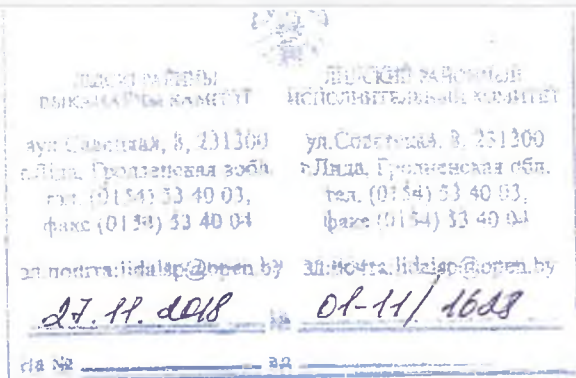 ЛІДСКІ РАЁННЫ
ВЫКАНАЎЧЫ КАМІТЭТ
вул. Савецкая, 8, 231300
г.Ліда, Гродзенская вобл.
тэл. (0154) 53 40 03,
факс (0154) 53 40 04
эл.пошта: lidaisp@open.by
ЛИДСКИЙ РАЙОННЫЙ
ИСПОЛНИТЕЛЬНЫЙ КОМИТЕТ
ул.Советская, 8, 231300
г.Лида, Гродненская обл.
тел. (0154) 53 40 03,
факс (0154) 53 40 04
эл.почта: lidaisp@open.by
27.11.2018 № 01-11/1628
На № ад